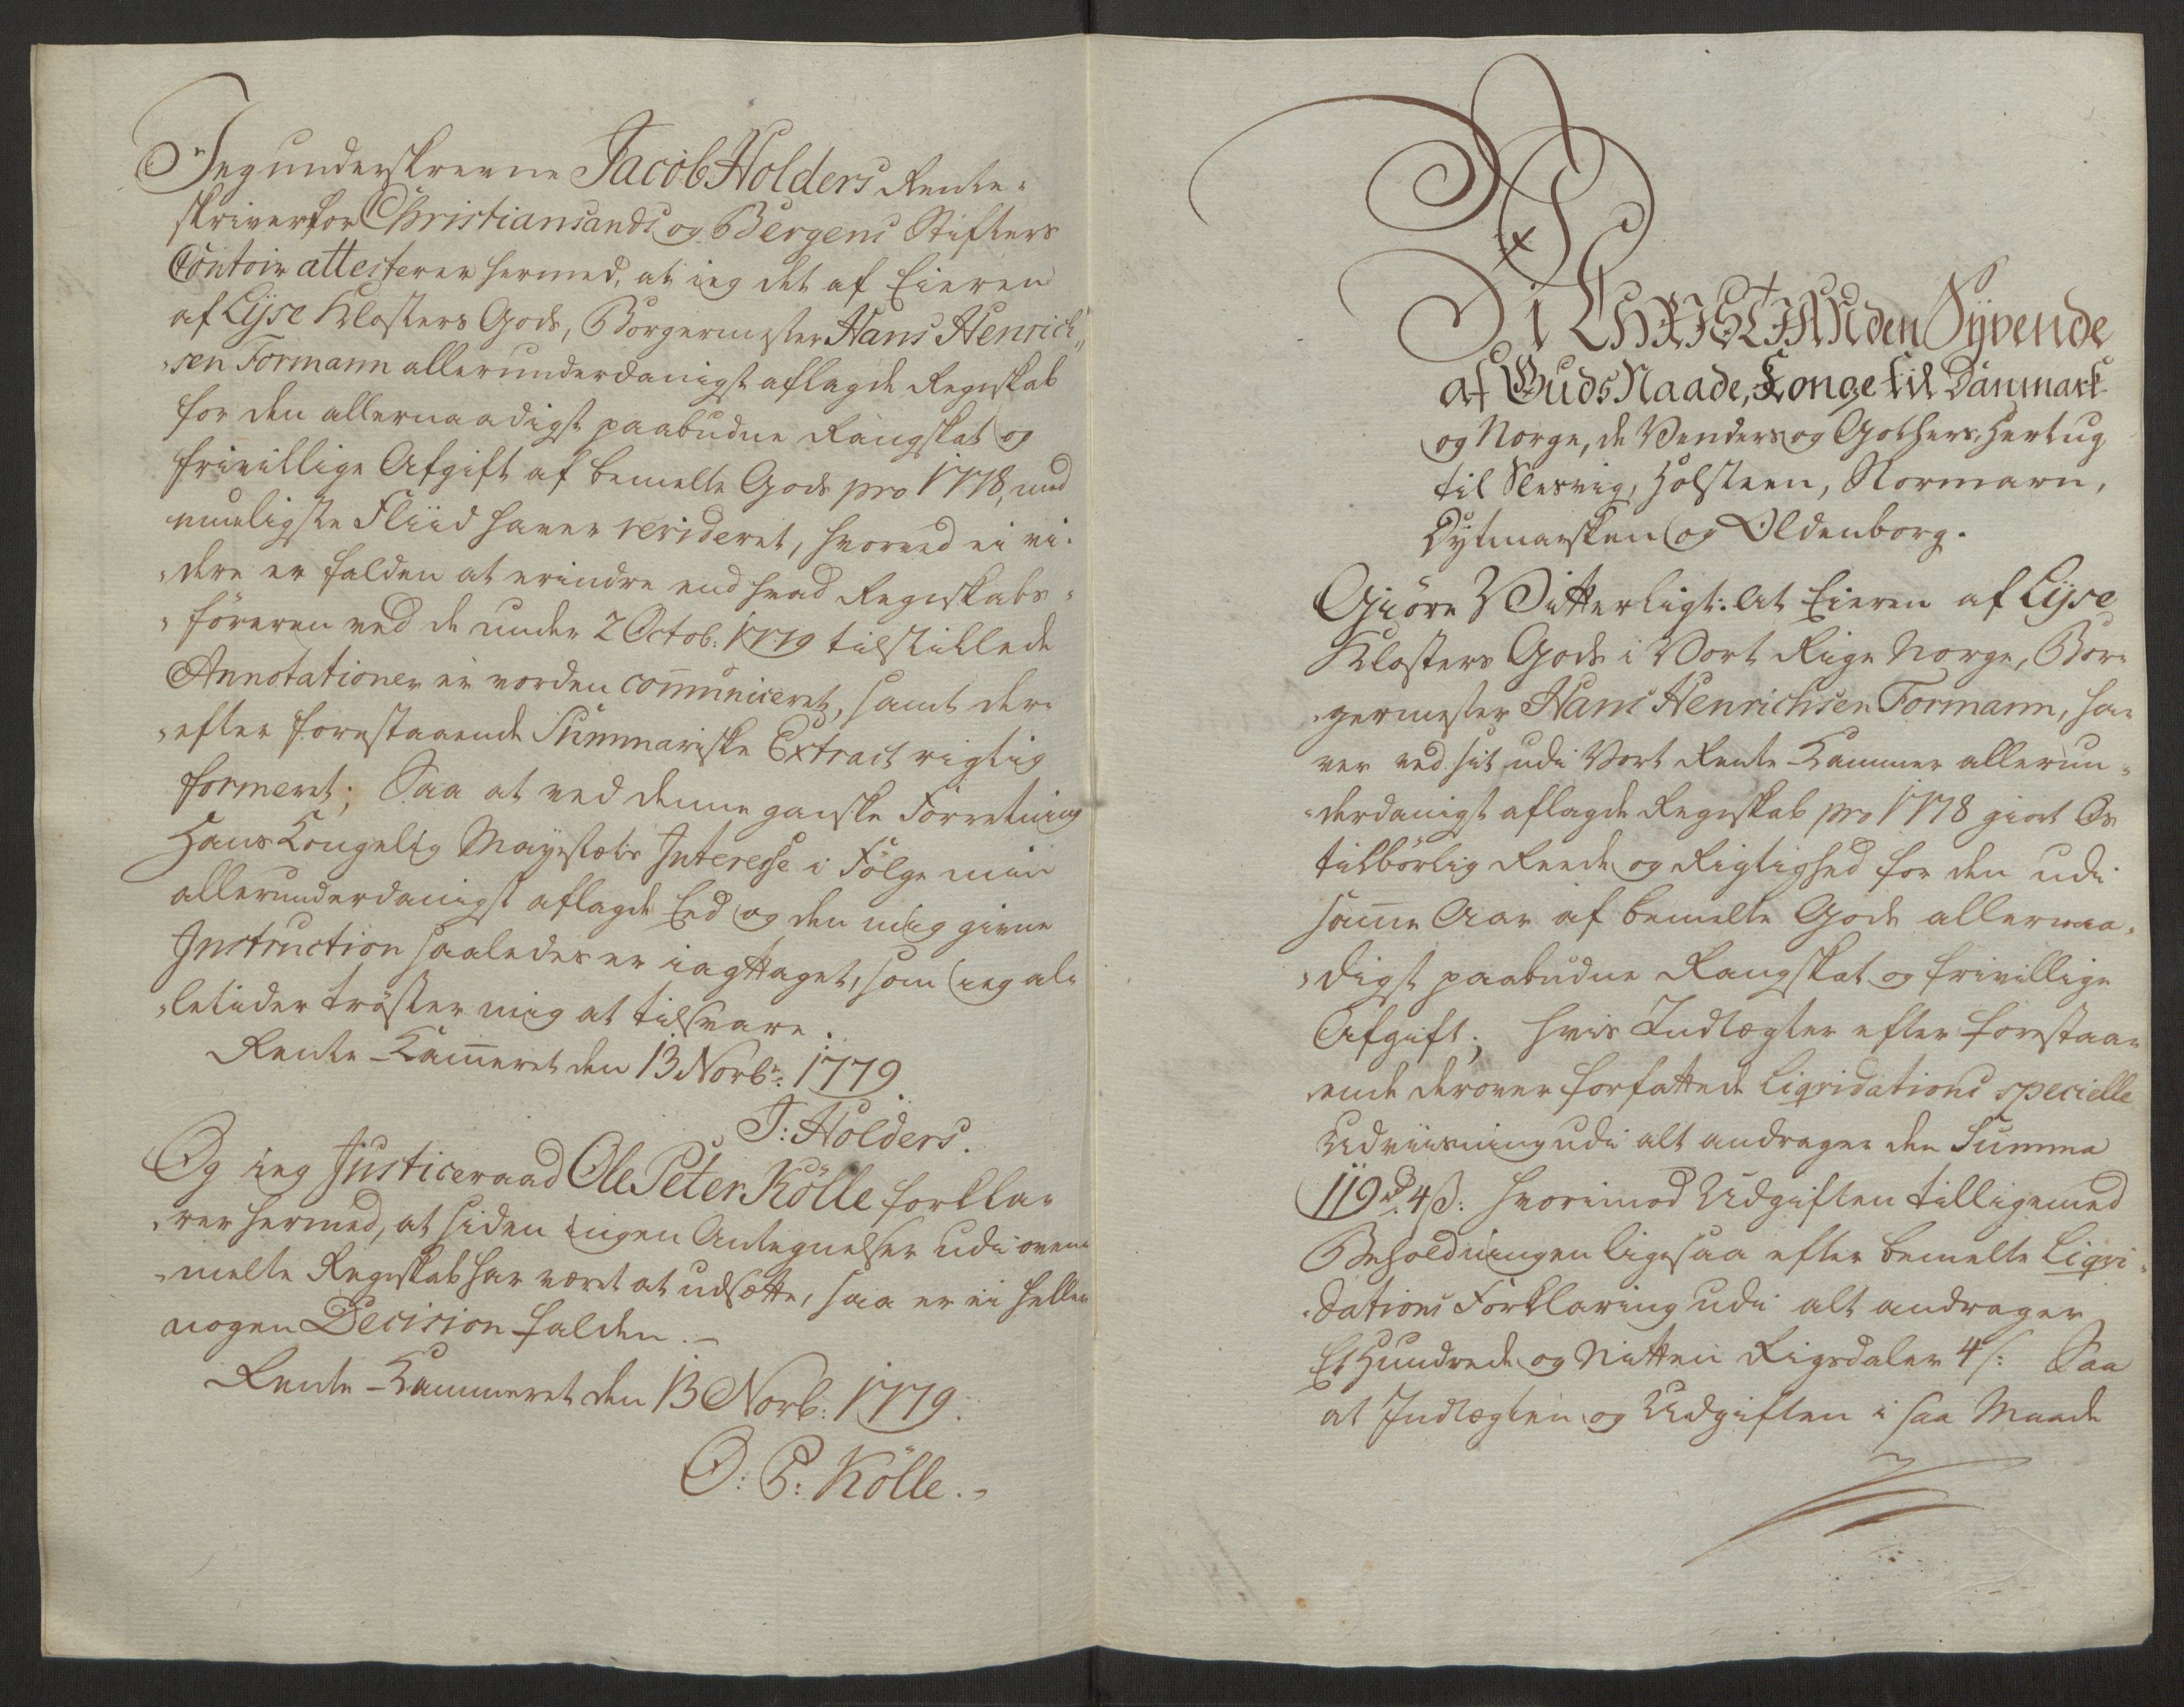 Jeg underskrevne Jacob Holders Rente-
skriver for Christiansands og Bergens Stifters
Contoir attesterer hermed, at ieg det af Eieren
af Lyse Klosters Gods, Borgermester Hans Henrich„
„sen Formann allerunderdanigst aflagde Regnskab
for den allernaadigst paabudne Rangskat og
frivillige Afgift af bemelte Gods pro 1778, med
mueligste Fliid haver revideret, hvorved ei vi-
„dere er falden at erindre end hvad Regnskabs-
„föreren ved de under 2 Octob: 1779 tilstillede
Annotationer er vorden com̄uniceret, samt der-
„efter forestaaende Summariske Extract rigtig
formeret; Saa at ved denne ganske Forretning
Hans Kongelig Mayestæts Interesse i Fölge min
allerunderdanigst aflagde Eed og den mig givne
Instruction saaledes er iagttaget, som ieg al-
„letider tröster mig at tilsvare.
Rente-Kam̄eret den 13 Novbr: 1779
J: Holders.
Og ieg Justiceraad Ole Peter Kölle forkla-
„rer hermed, at siden ingen Antegnelser udi oven-
„melte Regnskab har været at udsætte, saa er ei heller
nogen Decision falden.-
Rente-Kammeret den 13 Novb: 1779.
O: P: Kölle.
Vi CHRISTIAN den Syvende
af Guds Naade, Konge til Danmark
og Norge, de Venders og Gothers, Hertug
til Slesvig, Holsteen, Stormarn,
Dytmarsken og Oldenborg.
Giöre Vitterligt: At Eieren af Lyse
Klosters Gods i Vort Rige Norge, Bor-
„germester Hans Henrichsen Formann, ha-
ver ved sit udi Vort Rente-Kammer allerun-
„derdanigst aflagde Regnskab pro 1778 giort Os
tilbörlig Reede og Rigtighed for den udi
sam̄e Aar af bemelte Gods allernaa-
„digst paabudne Rangskat og frivillige
Afgift; hvis Indtægter efter forestaa-
„ende derover forfattede Liqvidations specielle
Udviisning udi alt andrager den Summa
119 rd 4 ß: hvorimod Udgiften tilligemed
Beholdningen ligesaa efter bemelte Liqvi-
„dations Forklaring udi alt andrager
Et Hundrede og Nitten Rigsdaler 4 ß: Saa
at Indtægten og Udgiften i saa Maade